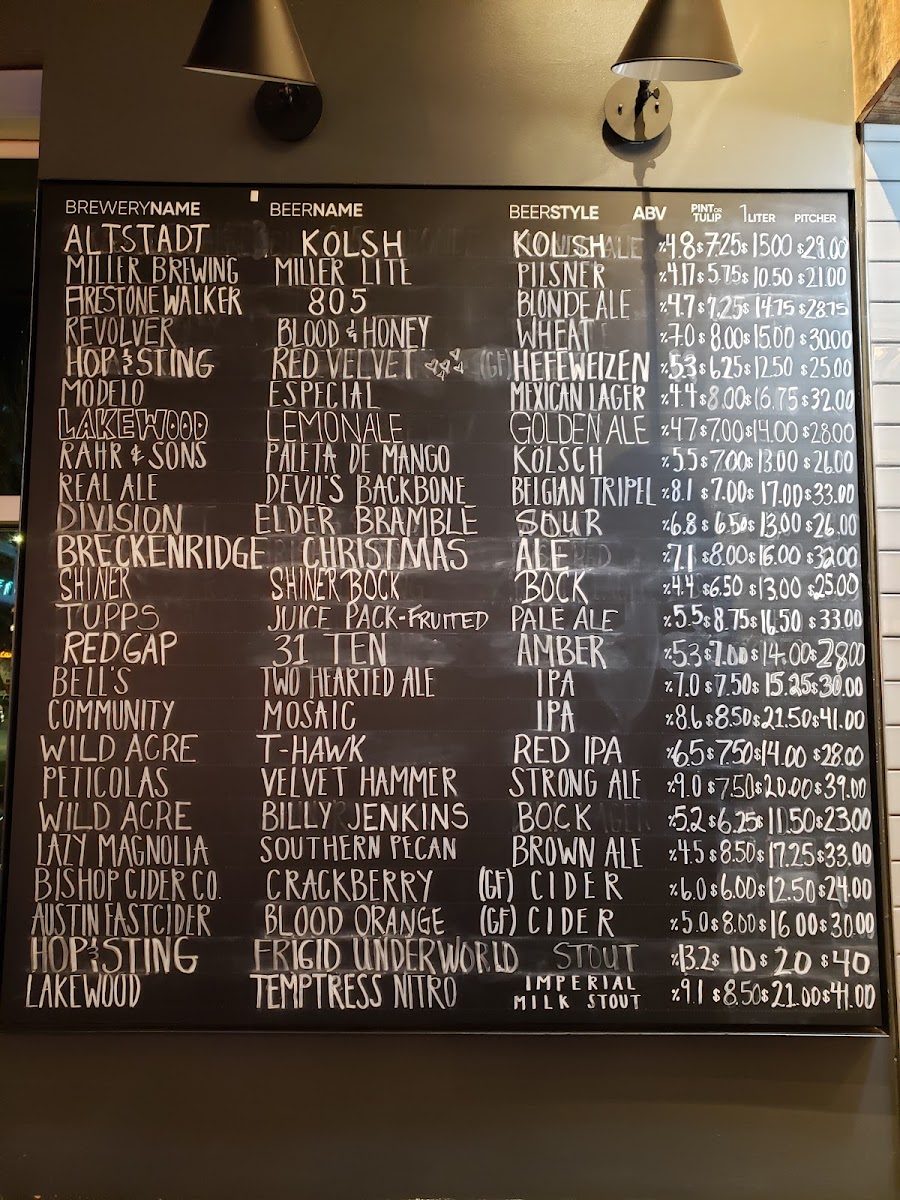 BREWERYNAME BEERNAME BEERSTYLE ABV PINT OR TULIP 1LITER PITCHER
ALTSTADT KÖLSH KÖLSH %4.8 $7.25 $1500 $29.00
MILLER BREWING MILLER LITE PILSNER %4.17 $5.75 $10.50 $21.00
FIRESTONE WALKER 805 BLONDE ALE %4.7 $7.25 $14.75 $28.75
REVOLVER BLOOD & HONEY WHEAT %7.0 $8.00 $15.00 $30.00
HOP & STING RED VELVET (GF) HEFEWEIZEN %5.3 $6.25 $12.50 $25.00
MODELO ESPECIAL MEXICAN LAGER %4.4 $8.00 $16.75 $32.00
LAKEWOOD LEMONALE GOLDEN ALE %4.7 $7.00 $14.00 $28.00
RAHR & SONS PALETA DE MANGO KÖLSCH %5.5 $7.00 $13.00 $26.00
REAL ALE DEVIL'S BACKBONE BELGIAN TRIPEL %8.1 $7.00 $17.00 $33.00
DIVISION ELDER BRAMBLE SOUR %6.8 $6.50 $13.00 $26.00
BRECKENRIDGE CHRISTMAS ALE %7.1 $8.00 $16.00 $32.00
SHINER SHINER BOCK BOCK %4.4 $6.50 $13.00 $25.00
TUPPS JUICE PACK-FRUITED PALE ALE %5.5 $8.75 $16.50 $33.00
REDGAP 31 TEN AMBER %5.3 $7.00 $14.00 $28.00
BELL'S TWO HEARTED ALE IPA %7.0 $7.50 $15.25 $30.00
COMMUNITY MOSAIC IPA %8.6 $8.50 $21.50 $41.00
WILD ACRE T-HAWK RED IPA %6.5 $7.50 $14.00 $28.00
PETICOLAS VELVET HAMMER STRONG ALE %9.0 $7.50 $20.00 $39.00
WILD ACRE BILLY JENKINS BOCK %5.2 $6.25 $11.50 $23.00
LAZY MAGNOLIA SOUTHERN PECAN BROWN ALE %4.5 $8.50 $17.25 $33.00
BISHOP CIDER CO. CRACKBERRY (GF) CIDER %6.0 $6.00 $12.50 $24.00
AUSTIN EASTCIDER BLOOD ORANGE (GF) CIDER %5.0 $8.00 $16.00 $30.00
HOP & STING FRIGID UNDERWORLD STOUT %13.2 $10 $20 $40
LAKEWOOD TEMPTRESS NITRO IMPERIAL MILK STOUT %9.1 $8.50 $21.00 $41.00